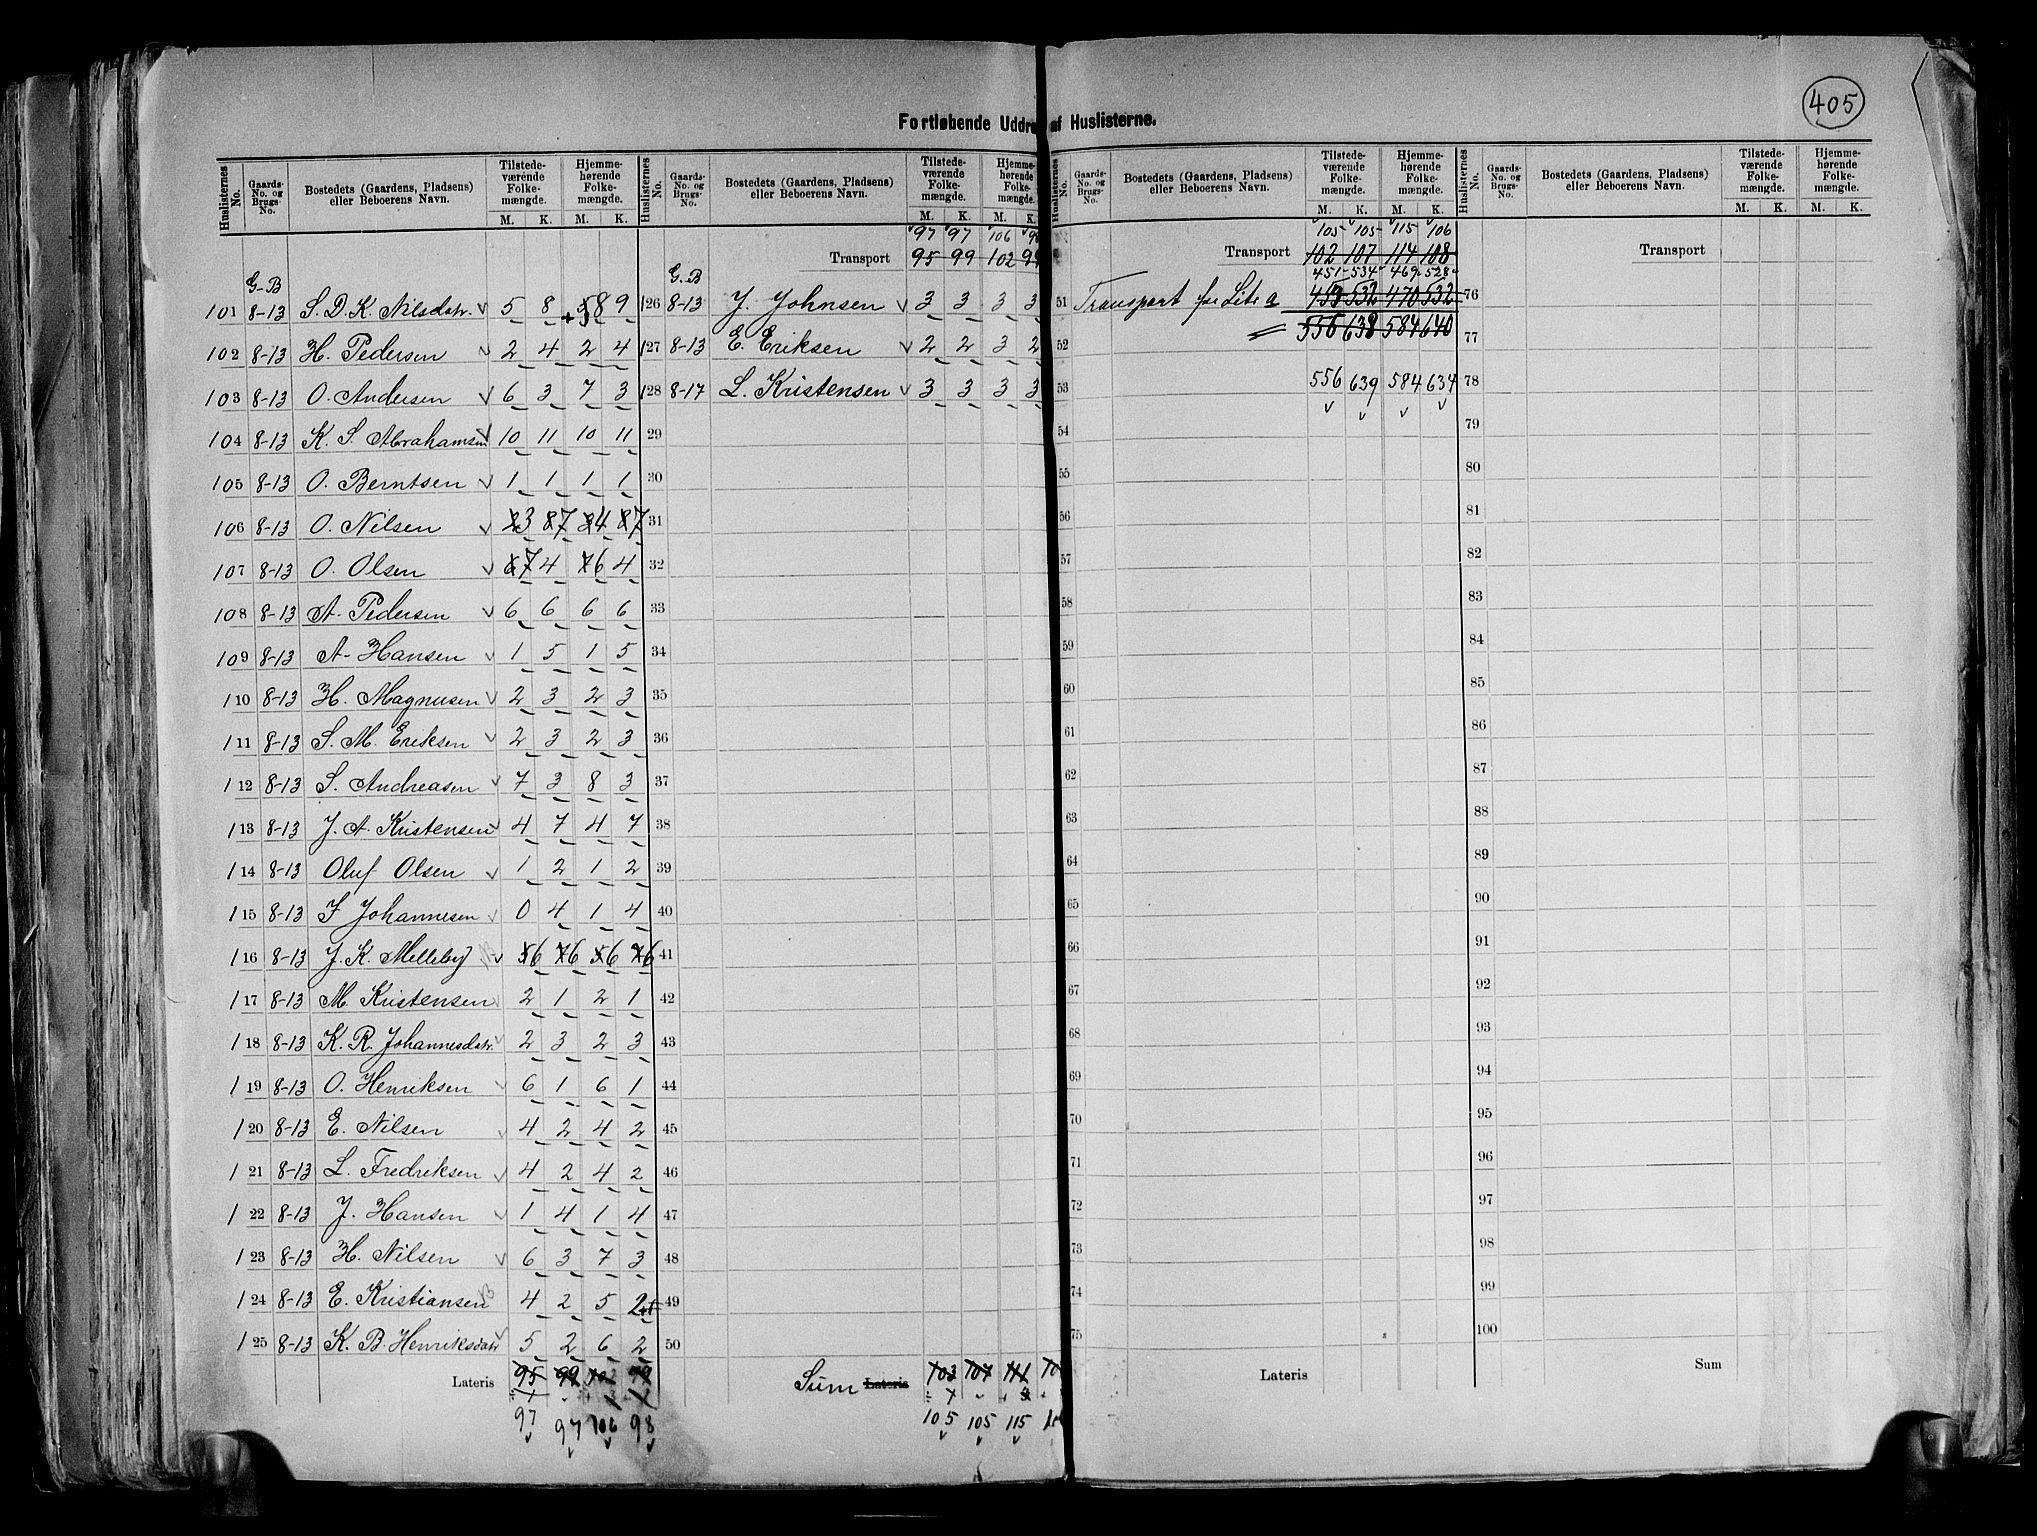 405
Fortløbende Uddra af Huslisterne.
Huslisternes No. Gaards-No. og Brugs-No. Bostedets (Gaardens, Pladsens) eller Beboerens Navn. Tilstede-værende Folke-mængde. M. K. Hjemme-hørende Folke-mængde. M. K.
G-B
101 8-13 S. D. K. Nilsdatr. 5 8 9
102 8-13 H. Pedersen 2 4 2 4
103 8-13 O. Andersen 6 3 7 3
104 8-13 K. S. Abrahamsen 10 11 10 11
105 8-13 O. Berntsen 1 1 1 1
106 8-13 O. Nilsen 3 7 4 7
107 8-13 O. Olsen 7 4 6 4
108 8-13 A. Pedersen 6 6 6 6
109 8-13 A. Hansen 1 5 1 5
110 8-13 H. Magnusen 2 3 2 3
111 8-13 S. M. Eriksen 2 3 2 3
112 8-13 S. Andreasen 7 3 8 3
113 8-13 J. A. Kristensen 4 7 4 7
114 8-13 Oluf Olsen 1 2 1 2
115 8-13 Johannesen 0 4 1 4
116 8-13 J. K. Melleby 6 6 6 6
117 8-13 M. Kristensen 2 1 2 1
118 8-13 K. R. Johannesdatr. 2 3 2 3
119 8-13 O. Henriksen 6 1 6 1
120 8-13 E. Nilsen 4 2 4 2
121 8-13 L. Fredriksen 4 2 4 2
122 8-13 J. Hansen 1 4 1 4
123 8-13 H. Nilsen 6 3 7 3
124 8-13 E. Kristiansen 4 2 5 2+1
125 8-13 K. B. Henriksdatr 5 2 6 2
Lateris 95 99
97 97 106 98
Huslisternes No. Gaards-No. og Brugs-No. Bostedets (Gaardens, Pladsens) eller Beboerens Navn. Tilstede-værende Folke-mængde. M. K. Hjemme-hørende Folke-mængde. M. K.
97 97 106
Transport 95 99 102
G-B
126 8-13 J. Johnsen 3 3 3 3
127 8-13 E. Eriksen 2 2 3 2
128 8-17 L. Kristensen 3 3 3 3
29
30
31
32
33
34
35
36
37
38
39
40
41
42
43
44
45
46
47
48
49
50
Sum Lateris 103 107 111
105 105 115
No. Gaards-No. og Brugs-No. Bostedets (Gaardens, Pladsens) eller Beboerens Navn. Tilstede-værende Folke-mængde. M. K. Hjemme-hørende Folke-mængde. M. K.
105 105 115 106
Transport 102 107 114 108
451 534 469 528
51 Transport fra 532 470 532
52 556 638 584 640
53 556 639 584 634
54
55
56
57
58
59
60
61
62
63
64
65
66
67
68
69
70
71
72
73
74
75
Lateris
Huslisternes No. Gaards-No. og Brugs-No. Bostedets (Gaardens, Pladsens) eller Beboerens Navn. Tilstede-værende Folke-mængde. M. K. Hjemme-hørende Folke-mængde. M. K.
Transport
76
77
78
79
80
81
82
83
84
85
86
87
88
89
90
91
92
93
94
95
96
97
98
99
100
Sum